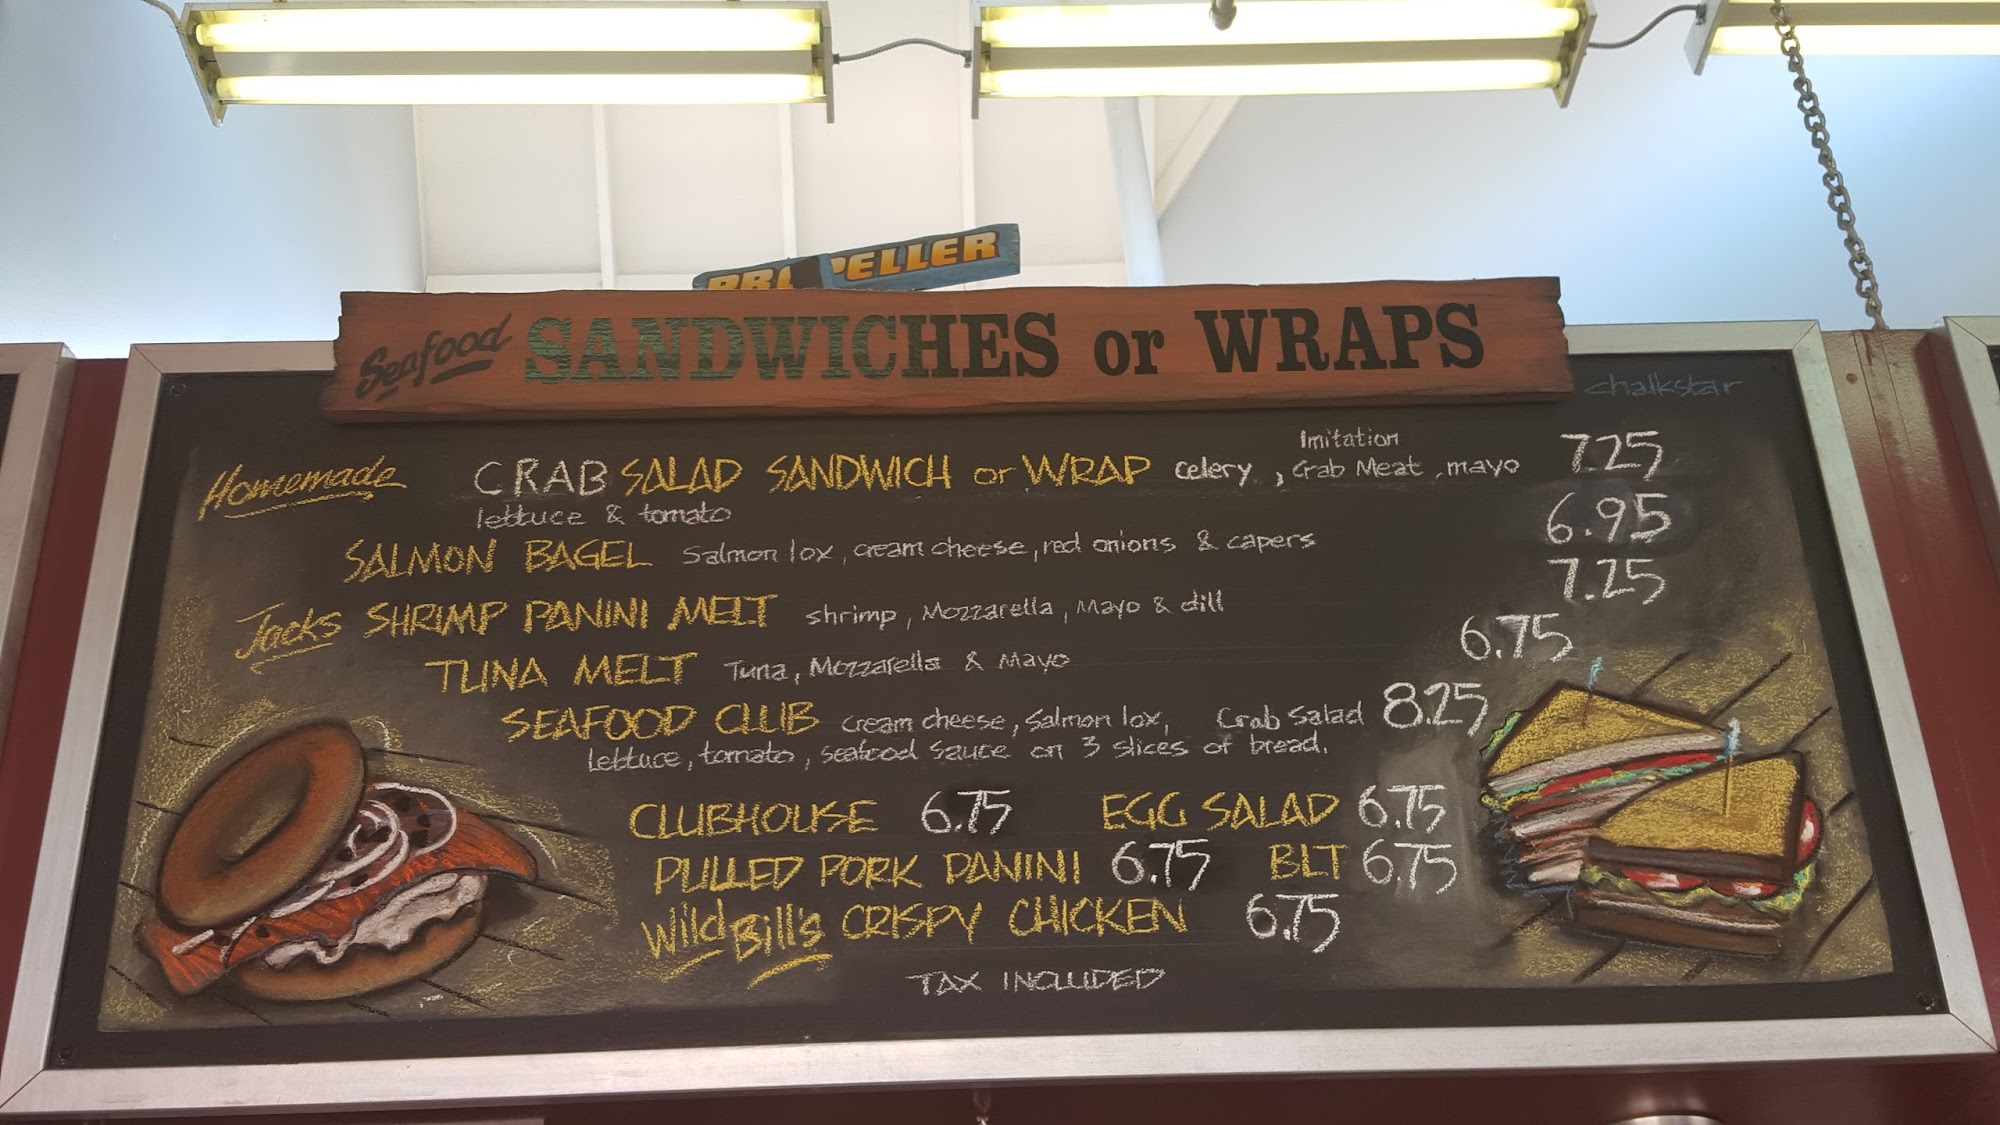 PROPELLER
Seafood SANDWICHES or WRAPS
chalkstar
Imitation
Homemade CRAB SALAD SANDWICH or WRAP celery, Crab Meat, mayo 7.25
lettuce & tomato
SALMON BAGEL Salmon lox, cream cheese, red onions & capers 6.95
Jacks SHRIMP PANINI MELT shrimp, Mozzarella, Mayo & dill 7.25
TUNA MELT Tuna, Mozzarella & Mayo 6.75
SEAFOOD CLUB cream cheese, Salmon lox, Crab Salad 8.25
Lettuce, tomato, seafood sauce on 3 slices of bread.
CLUBHOUSE 6.75 EGG SALAD 6.75
PULLED PORK PANINI 6.75 BLT 6.75
Wild Bill's CRISPY CHICKEN 6.75
TAX INCLUDED